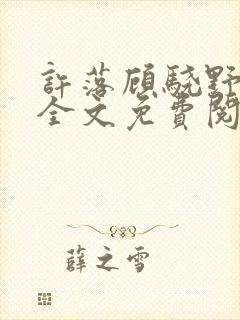 許落顧驍野
全文免費閱
薛之雪